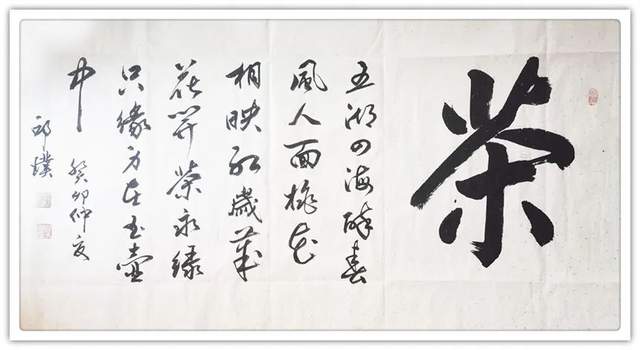 茶
五湖四海醉春
風人面桃花
相映红歲歲
花开茶永緑
只缘身在玉壺
中
癸卯仲夏